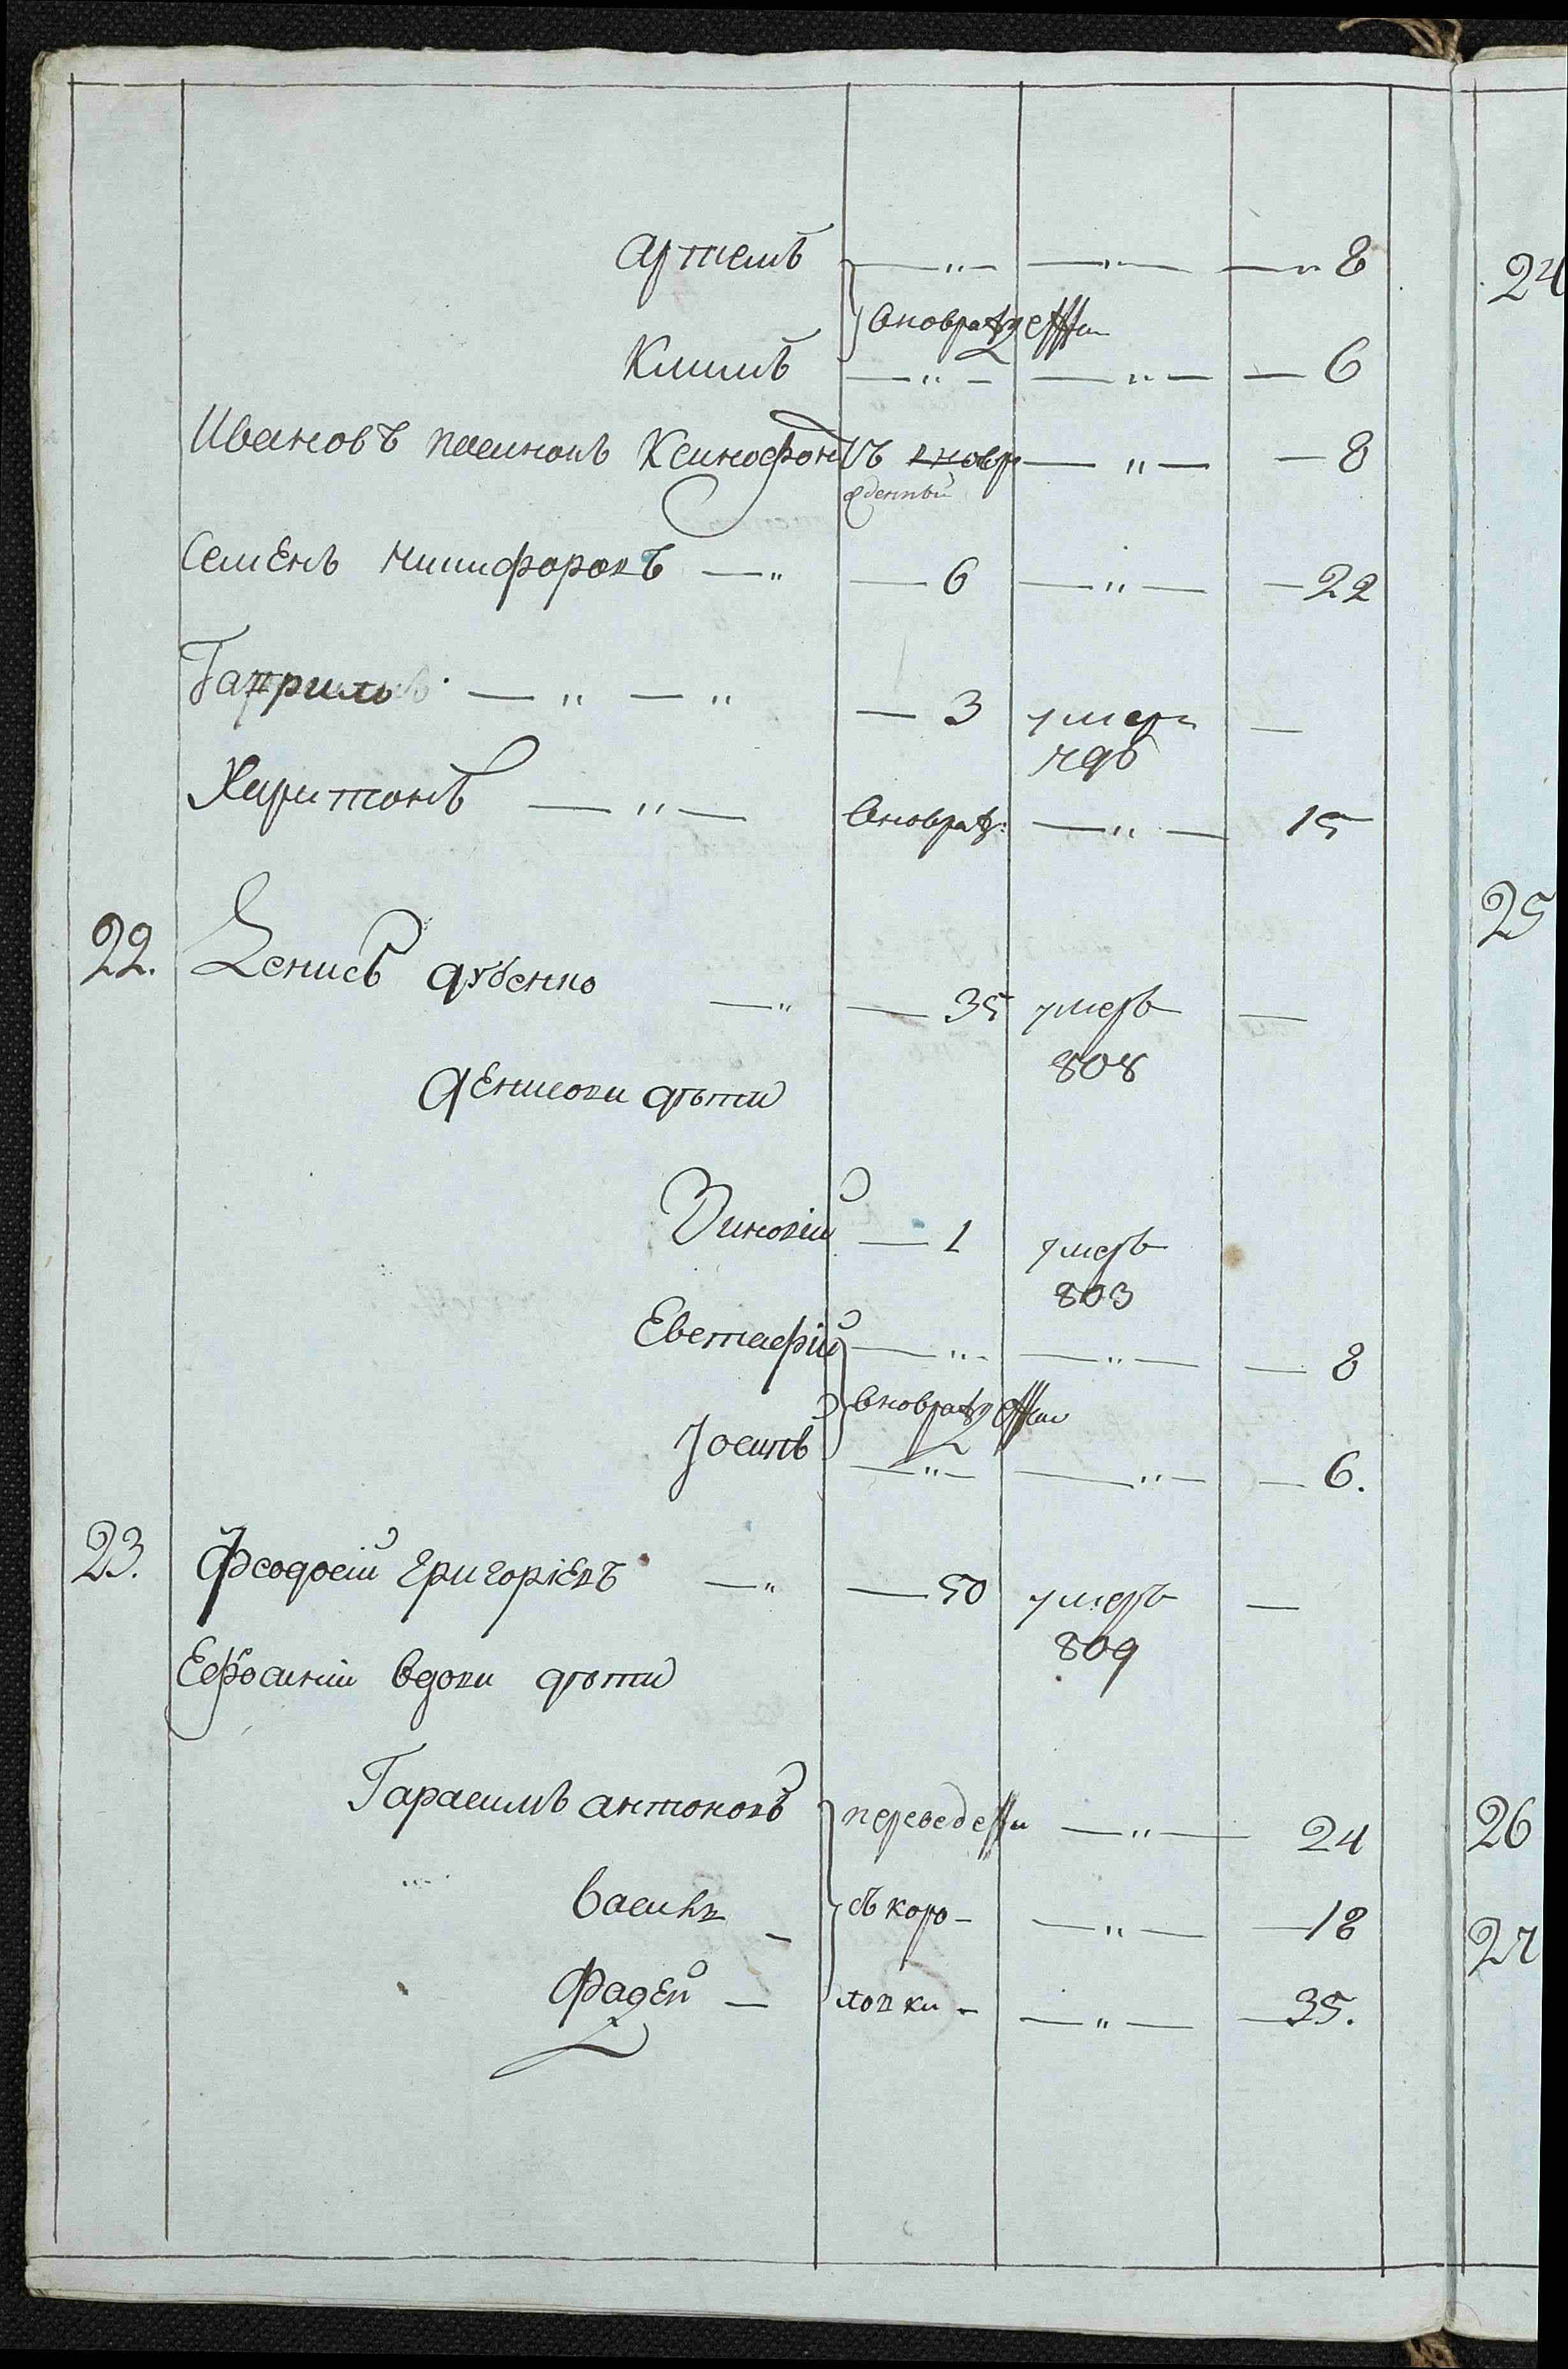 Артемъ — " — — " — — " 8
вновражденни
Климъ — " — — " — — 6
Ивановъ пасинокъ Ксинофонтъ вновр — " — — 8
жденный
Семенъ Никифоровъ — " — 6 — " — — 22
Гаврило — " — " — 3 умеръ —
796
Харитонъ — " — вновражд: — " — 15
22. Денисъ — " — 35 умеръ —
808
Денисови дѣти
Зиновій — 1 умеръ
803
Евстафій — " — — " — — 8
вновражденни
Іосипъ — " — — " — — 6.
23. Феодосій Григоріевъ — " — 50 умеръ —
809
Ефросиніи вдови дѣти
Гарасимъ Антоновъ переведенни — " — 24
Василь — съ коро- — " — — 18
Фадей — ловки — — " — — 35.
24
25
26
27